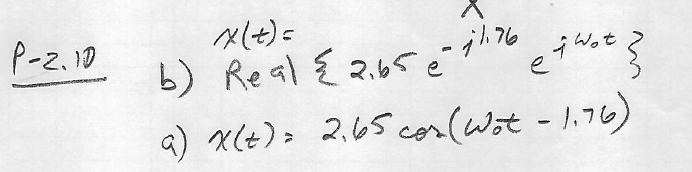 P-2.10
x(t)=
b) Real { 2.65 e^-j1.76 e^jω₀t }
a) x(t) = 2.65 cos(ω₀t - 1.76)